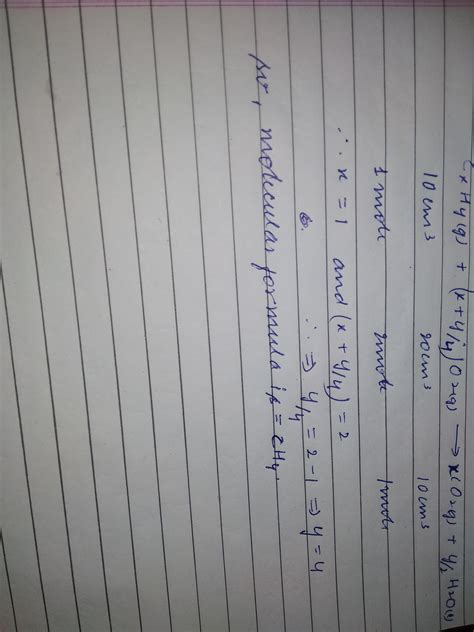 CxHy(g) + (x+y/4)O2(g) → xCO2(g) + y/2 H2O(l)
10cm3 20cm3 10cm3
1mole 2mole 1mole
∴ x = 1 and (x + y/4) = 2
∴ ⇒ y/4 = 2 - 1 ⇒ y = 4
so, molecular formula is = CH4.